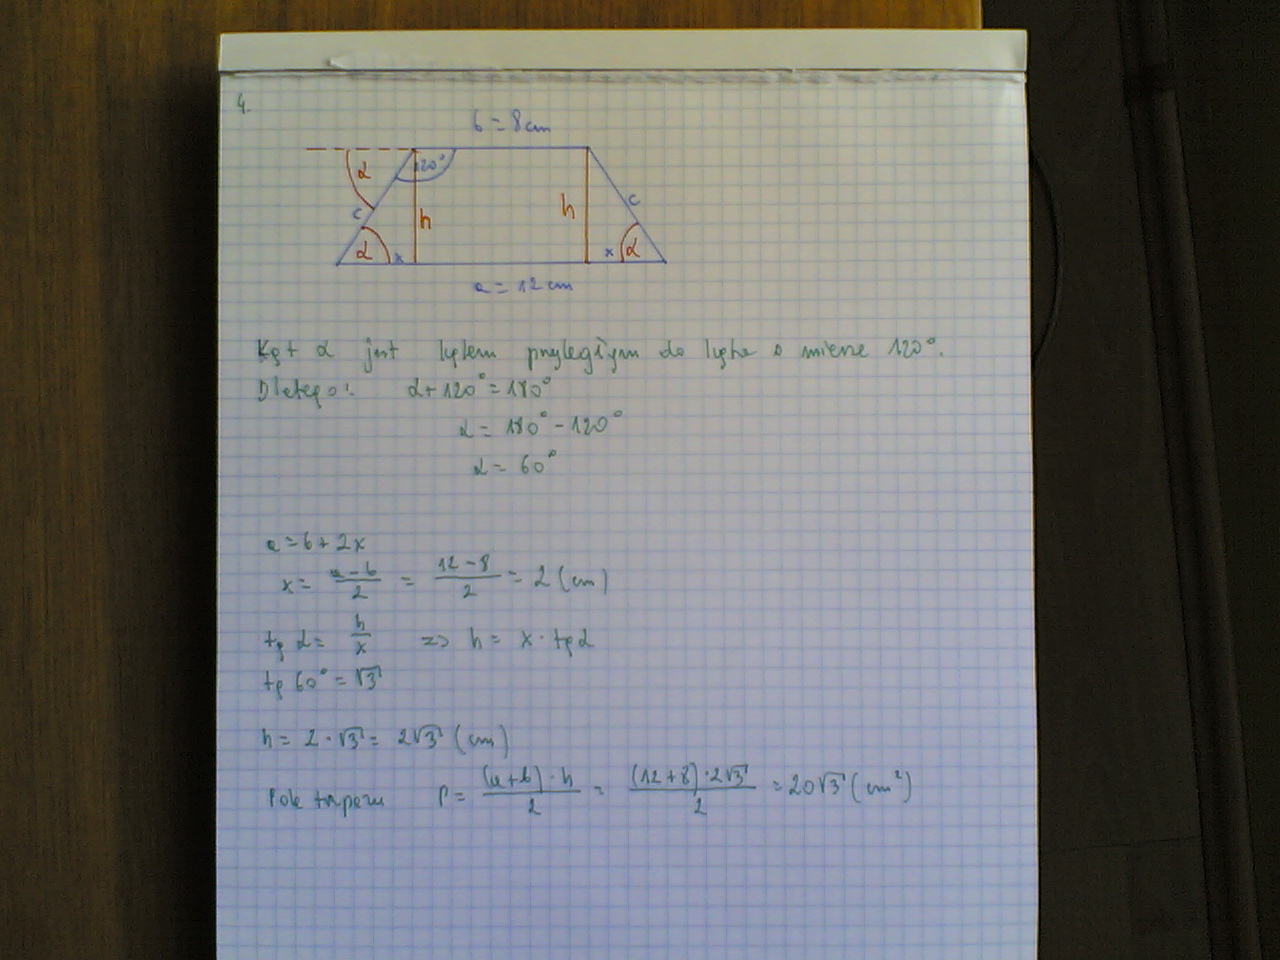 4.
b = 8 cm
α 120°
c h h c
α x x α
a = 12 cm
Kąt α jest kątem przyległym do kąta o mierze 120°.
Dlatego: α + 120° = 180°
α = 180° - 120°
α = 60°
a = b + 2x
x = (a - b)/2 = (12 - 8)/2 = 2 (cm)
tg α = h/x => h = x · tg α
tg 60° = √3
h = 2 · √3 = 2√3 (cm)
Pole trapezu P = ((a + b) · h)/2 = ((12 + 8) · 2√3)/2 = 20√3 (cm²)